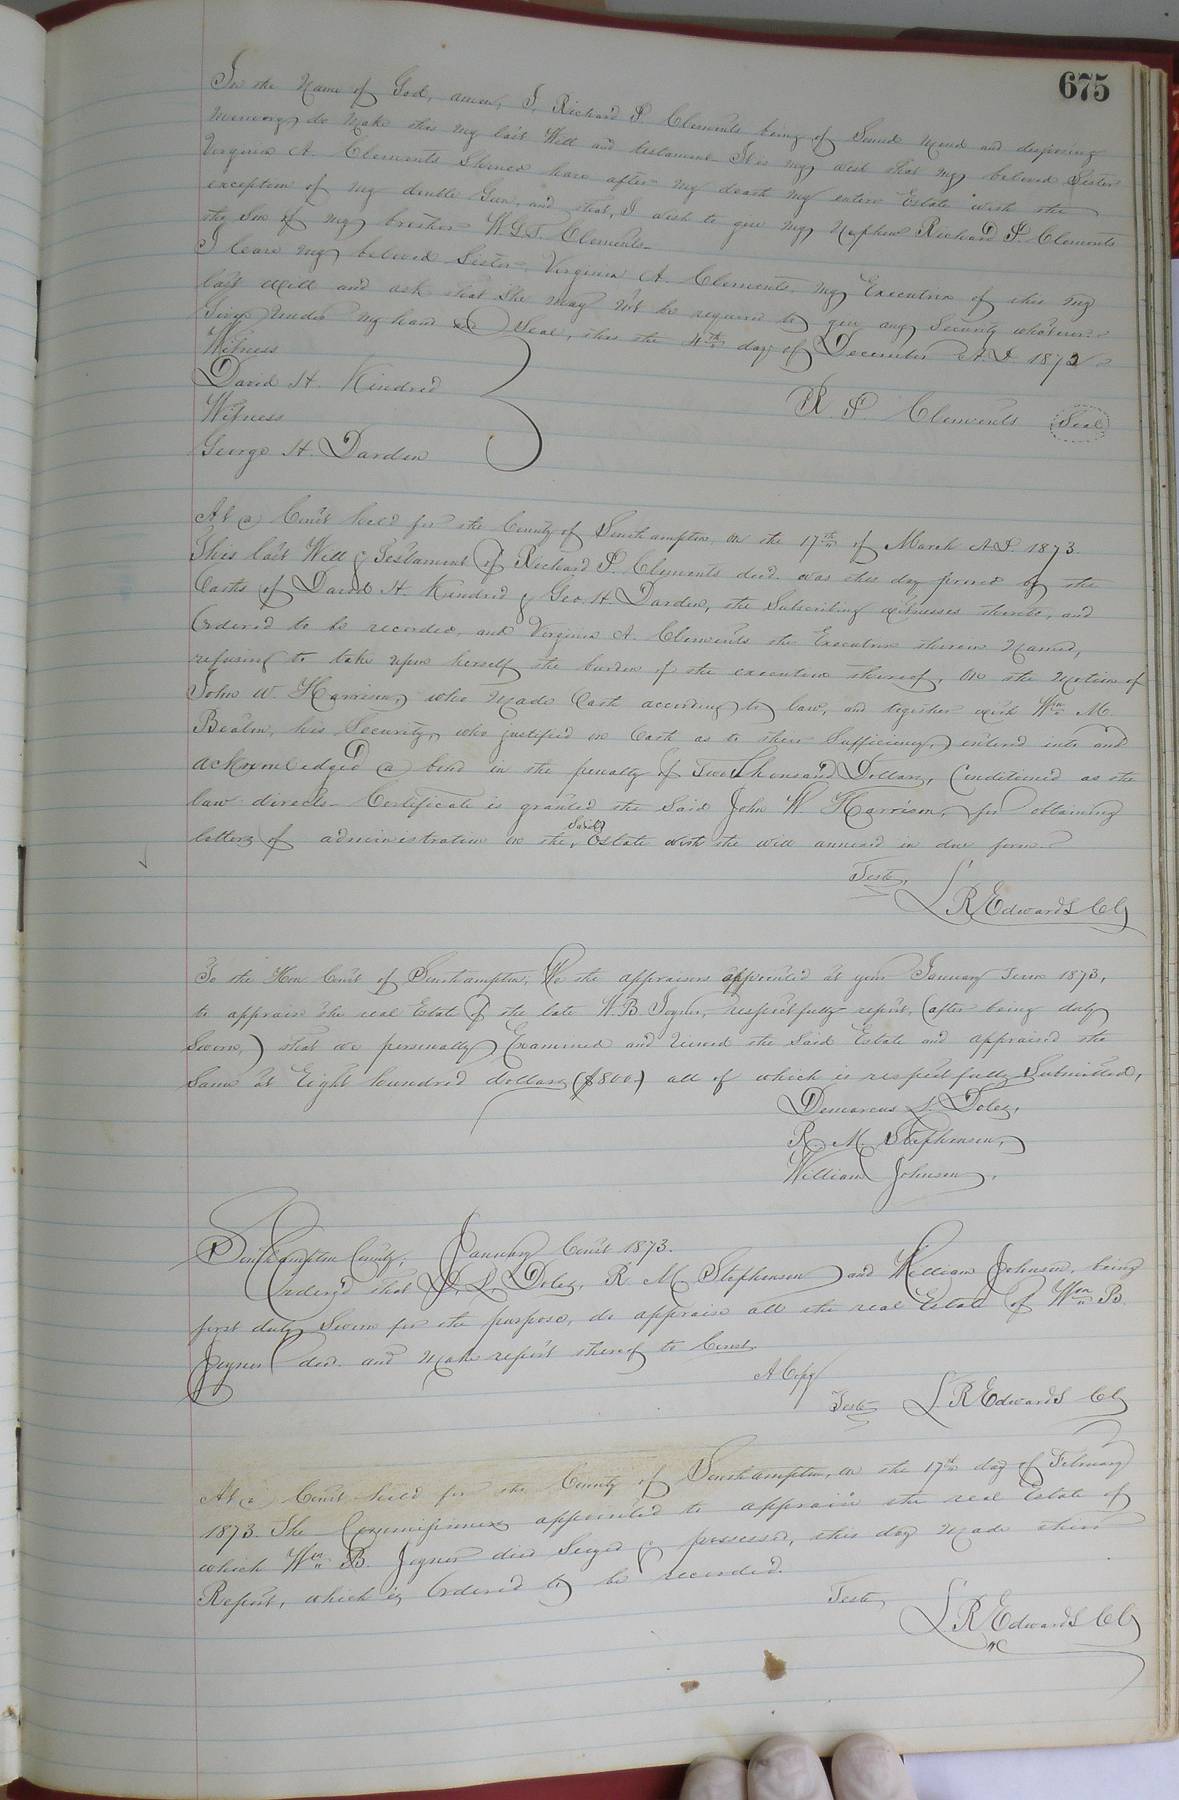 675
In the Name of God, amen, I, Richard P. Clements being of Sound Mind and disposing
memory, do Make this my last Will and testament. It is my wish that my beloved Sister
Virginia A. Clements Should have after my death my entire Estate with the
exception of my double Gun, and that, I wish to give my Nephew Richard P. Clements
the Son of my brother W. G. T. Clements.
I leave my beloved Sister, Virginia A. Clements, my Executrix of this my
last Will and ask that She may not be required to give any Security whatever.
Given Under my hand and Seal, this the 4th day of December A.D. 1872
Witness
David H. Kindred
Witness
R. P. Clements Seal
George H. Darden
At a Court held for the County of Southampton, on the 17th of March A.D. 1873.
This last Will & Testament of Richard P. Clements decd. was this day proved by the
Oaths of David H. Kindred & Geo. H. Darden, the Subscribing witnesses thereto, and
Ordered to be recorded, and Virginia A. Clements the Executrix therein Named,
refusing to take upon herself the burden of the execution thereof, On the Motion of
John W. Harrison, who Made Oath according to law, and together with Wm. M.
Beaton, his Security, who justified on Oath as to their Sufficiency, entered into and
acknowledged a bond in the penalty of Two Thousand Dollars, Conditioned as the
law directs. Certificate is granted the Said John W. Harrison, for obtaining
letters of administration on the Said Estate with the will annexed in due form.
Teste,
L R Edwards Clk
To the Hon Court of Southampton, We the appraisers appointed at your January Term 1873,
to appraise the real Estate of the late W. B. Joyner, respectfully report, (after being duly
Sworn,) that we personally Examined and viewed the Said Estate and appraised the
Same at Eight hundred dollars ($800.) all of which is respectfully Submitted,
Demarcus L. Doles,
R. M. Stephenson,
William Johnson,
Southampton County, January Court 1873.
Ordered that D. L. Doles, R. M. Stephenson and William Johnson, being
first duly Sworn for the purpose, do appraise all the real Estate of Wm B.
Joyner decd. and Make report thereof to Court.
A Copy
Teste L R Edwards Clk
At a Court held for the County of Southampton, on the 17th day of February
1873. The Commissioners appointed to appraise the real Estate of
which Wm B. Joyner died Seized & possessed, this day made their
Report, which is Ordered to be recorded.
Teste,
L R Edwards Clk